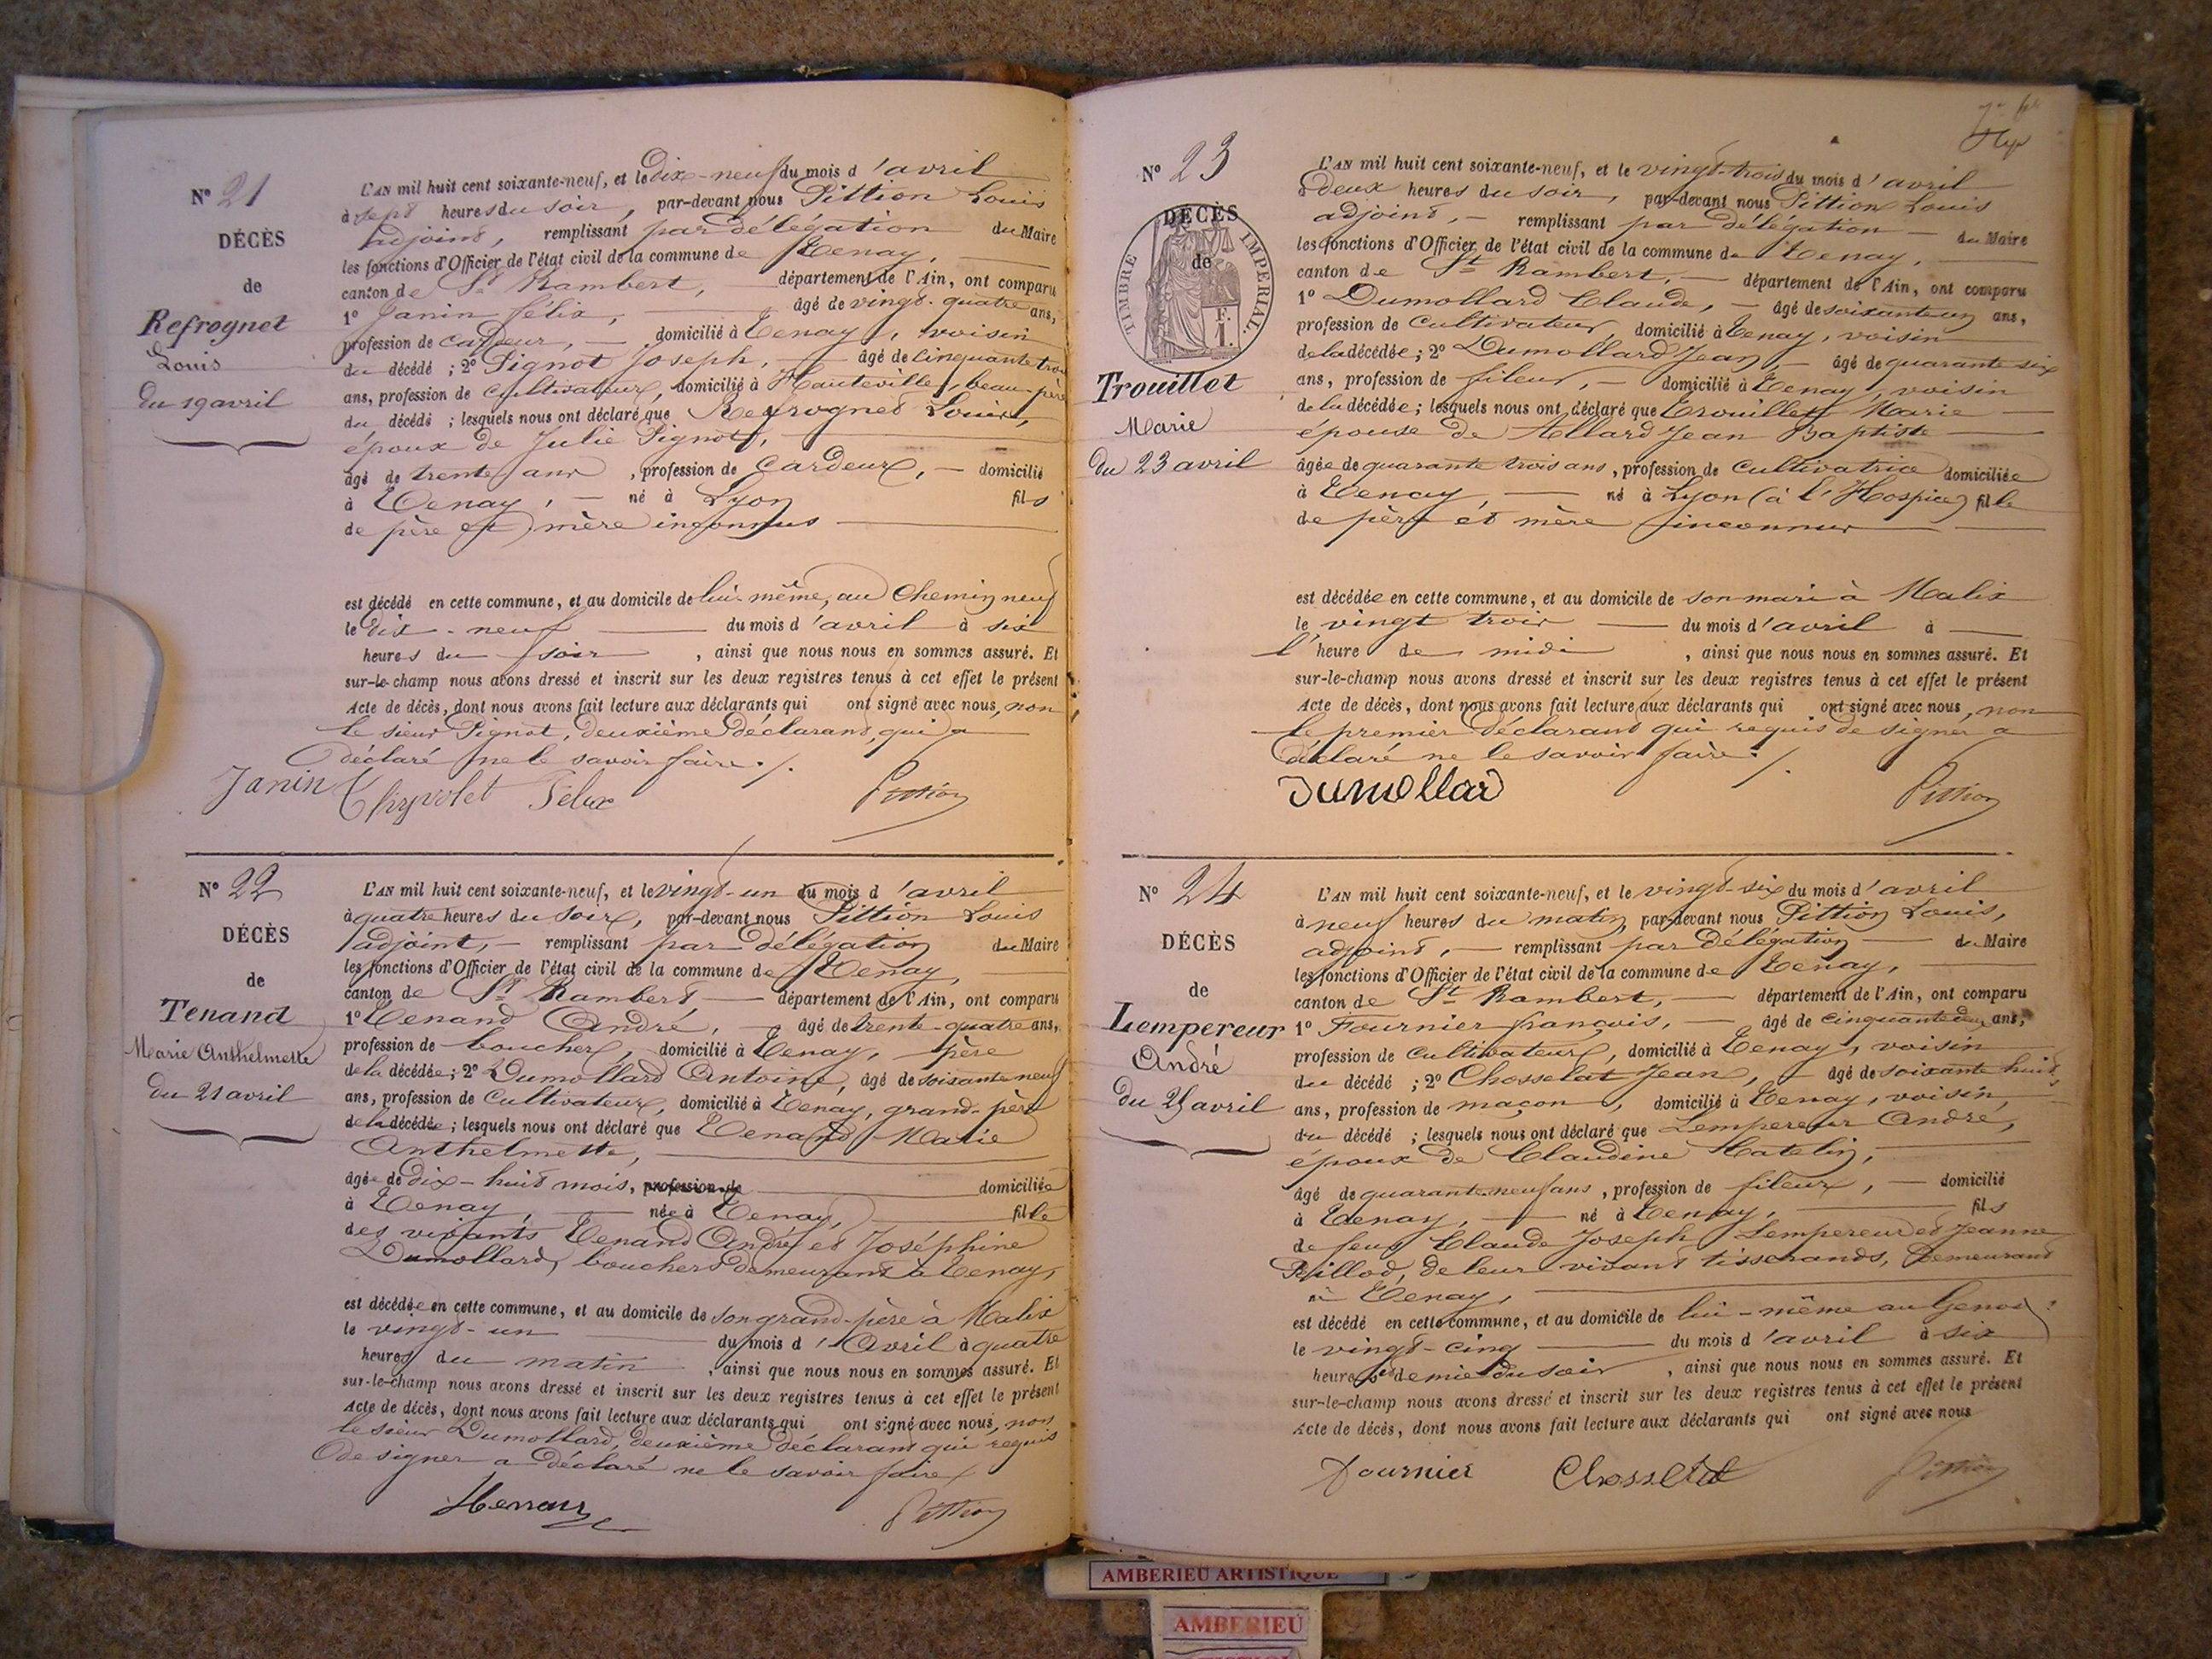 N° 21
DÉCÈS
de
Refrognet
Louis
du 19 avril
L'AN mil huit cent soixante-neuf, et le dix-neuf du mois d'avril
à sept heures du soir, par-devant nous Pittion Louis
adjoint, remplissant par délégation du Maire
les fonctions d'Officier de l'état civil de la commune de Tenay,
canton de St Rambert, département de l'Ain, ont comparu
1° Janin félix, âgé de vingt-quatre ans,
profession de cardeur, domicilié à Tenay, voisin
du décédé ; 2° Pignot Joseph, âgé de cinquante trois
ans, profession de cultivateur, domicilié à Hauteville, beau-père
du décédé ; lesquels nous ont déclaré que Refrognet Louis,
époux de Julie Pignot,
âgé de trente ans, profession de cardeur, domicilié
à Tenay, né à Lyon fils
de père et mère inconnus
est décédé en cette commune, et au domicile de lui-même, au Chemin neuf
le dix-neuf du mois d'avril à six
heures du soir, ainsi que nous nous en sommes assuré. Et
sur-le-champ nous avons dressé et inscrit sur les deux registres tenus à cet effet le présent
Acte de décès, dont nous avons fait lecture aux déclarants qui ont signé avec nous, non
le sieur Pignot, deuxième déclarant, qui a
déclaré ne le savoir faire./.
Janin Félix Pittion
N° 22
DÉCÈS
de
Tenand
Marie Anthelmette
du 21 avril
L'AN mil huit cent soixante-neuf, et le vingt-un du mois d'avril
à quatre heures du soir, par-devant nous Pittion Louis
adjoint, remplissant par délégation du Maire
les fonctions d'Officier de l'état civil de la commune de Tenay,
canton de St Rambert département de l'Ain, ont comparu
1° Tenand André, âgé de trente-quatre ans,
profession de boucher, domicilié à Tenay, père
de la décédée ; 2° Dumollard Antoine, âgé de soixante neuf
ans, profession de cultivateur, domicilié à Tenay, grand-père
de la décédée ; lesquels nous ont déclaré que Tenand Marie
Anthelmette,
âgée de dix-huit mois, profession de domiciliée
à Tenay, née à Tenay, fille
des vivants Tenand André et Joséphine
Dumollard, bouchers demeurant à Tenay,
est décédée en cette commune, et au domicile de son grand-père à Malix
le vingt-un du mois d'Avril à quatre
heures du matin, ainsi que nous nous en sommes assuré. Et
sur-le-champ nous avons dressé et inscrit sur les deux registres tenus à cet effet le présent
Acte de décès, dont nous avons fait lecture aux déclarants qui ont signé avec nous, non
le sieur Dumollard, deuxième déclarant qui requis
de signer a déclaré ne le savoir faire
Pittion
N° 23
DÉCÈS
de
TIMBRE IMPERIAL.
1 F.
Trouillet
Marie
du 23 avril
L'AN mil huit cent soixante-neuf, et le vingt-trois du mois d'avril
à deux heures du soir, par-devant nous Pittion Louis
adjoint, remplissant par délégation du Maire
les fonctions d'Officier de l'état civil de la commune de Tenay,
canton de St Rambert, département de l'Ain, ont comparu
1° Dumollard Claude, âgé de soixante un ans,
profession de cultivateur, domicilié à Tenay, voisin
de la décédée ; 2° Dumollard Jean, âgé de quarante six
ans, profession de fileur, domicilié à Tenay, voisin
de la décédée ; lesquels nous ont déclaré que Trouillet Marie
épouse de Allard Jean Baptiste
âgée de quarante trois ans, profession de cultivatrice domiciliée
à Tenay, né à Lyon (à l'Hospice) fille
de père et mère inconnus
est décédée en cette commune, et au domicile de son mari à Malix
le vingt trois du mois d'avril à
l'heure de midi, ainsi que nous nous en sommes assuré. Et
sur-le-champ nous avons dressé et inscrit sur les deux registres tenus à cet effet le présent
Acte de décès, dont nous avons fait lecture aux déclarants qui ont signé avec nous, non
le premier déclarant qui requis de signer a
déclaré ne le savoir faire./.
Dumollard Pittion
N° 24
DÉCÈS
de
Lempereur
André
du 25 avril
L'AN mil huit cent soixante-neuf, et le vingt-six du mois d'avril
à neuf heures du matin, par-devant nous Pittion Louis,
adjoint, remplissant par délégation du Maire
les fonctions d'Officier de l'état civil de la commune de Tenay,
canton de St Rambert, département de l'Ain, ont comparu
1° Fournier françois, âgé de cinquante deux ans,
profession de cultivateur, domicilié à Tenay, voisin
du décédé ; 2° Chosselat Jean, âgé de soixante huit
ans, profession de maçon, domicilié à Tenay, voisin,
du décédé ; lesquels nous ont déclaré que Lempereur André,
époux de Claudine Matelin,
âgé de quarante neuf ans, profession de fileur, domicilié
à Tenay, né à Tenay, fils
de feus Claude Joseph Lempereur et Jeanne
Peillod, de leur vivant tisserands, demeurant
à Tenay,
est décédé en cette commune, et au domicile de lui-même au Genod
le vingt-cinq du mois d'avril à six
heures et demie du soir, ainsi que nous nous en sommes assuré. Et
sur-le-champ nous avons dressé et inscrit sur les deux registres tenus à cet effet le présent
Acte de décès, dont nous avons fait lecture aux déclarants qui ont signé avec nous
Fournier Chosselat Pittion
AMBERIEU ARTISTIQUE
AMBERIEU